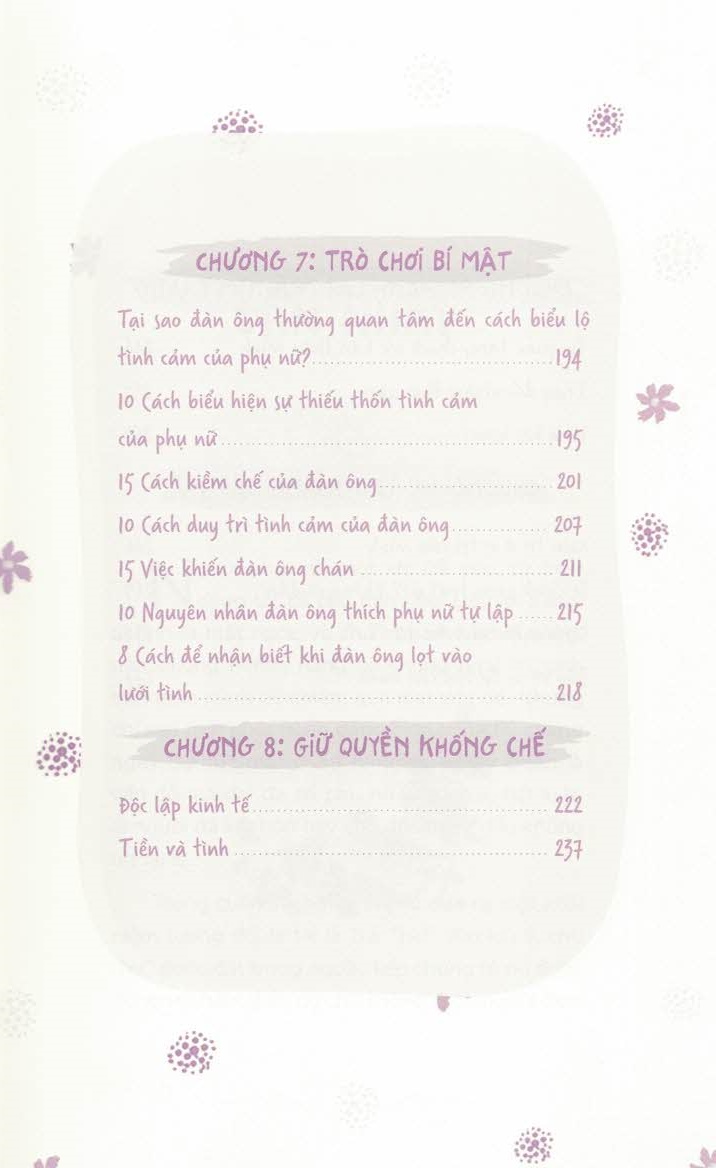 CHƯƠNG 7: TRÒ CHƠI BÍ MẬT
Tại sao đàn ông thường quan tâm đến cách biểu lộ
tình cảm của phụ nữ?..........194
10 Cách biểu hiện sự thiếu thốn tình cảm
của phụ nữ..........195
15 Cách kiềm chế của đàn ông..........201
10 Cách duy trì tình cảm của đàn ông..........207
15 Việc khiến đàn ông chán..........211
10 Nguyên nhân đàn ông thích phụ nữ tự lập......215
8 Cách để nhận biết khi đàn ông lọt vào
lưới tình..........218
CHƯƠNG 8: GIỮ QUYỀN KHỐNG CHẾ
Độc lập kinh tế..........222
Tiền và tình..........237